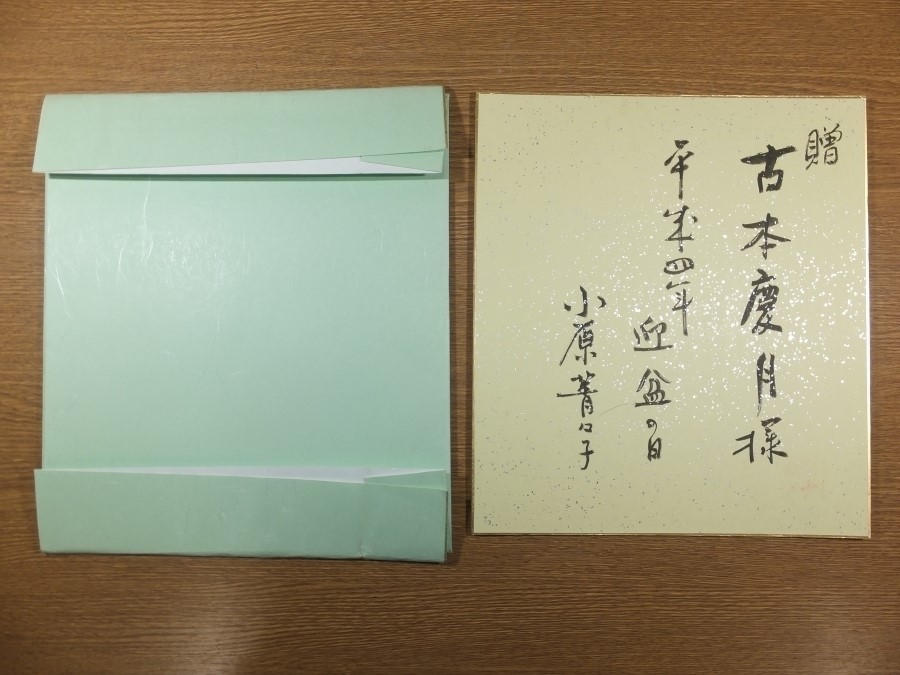 贈
古本慶月様
平成四年
迎盆の日
小原菁々子